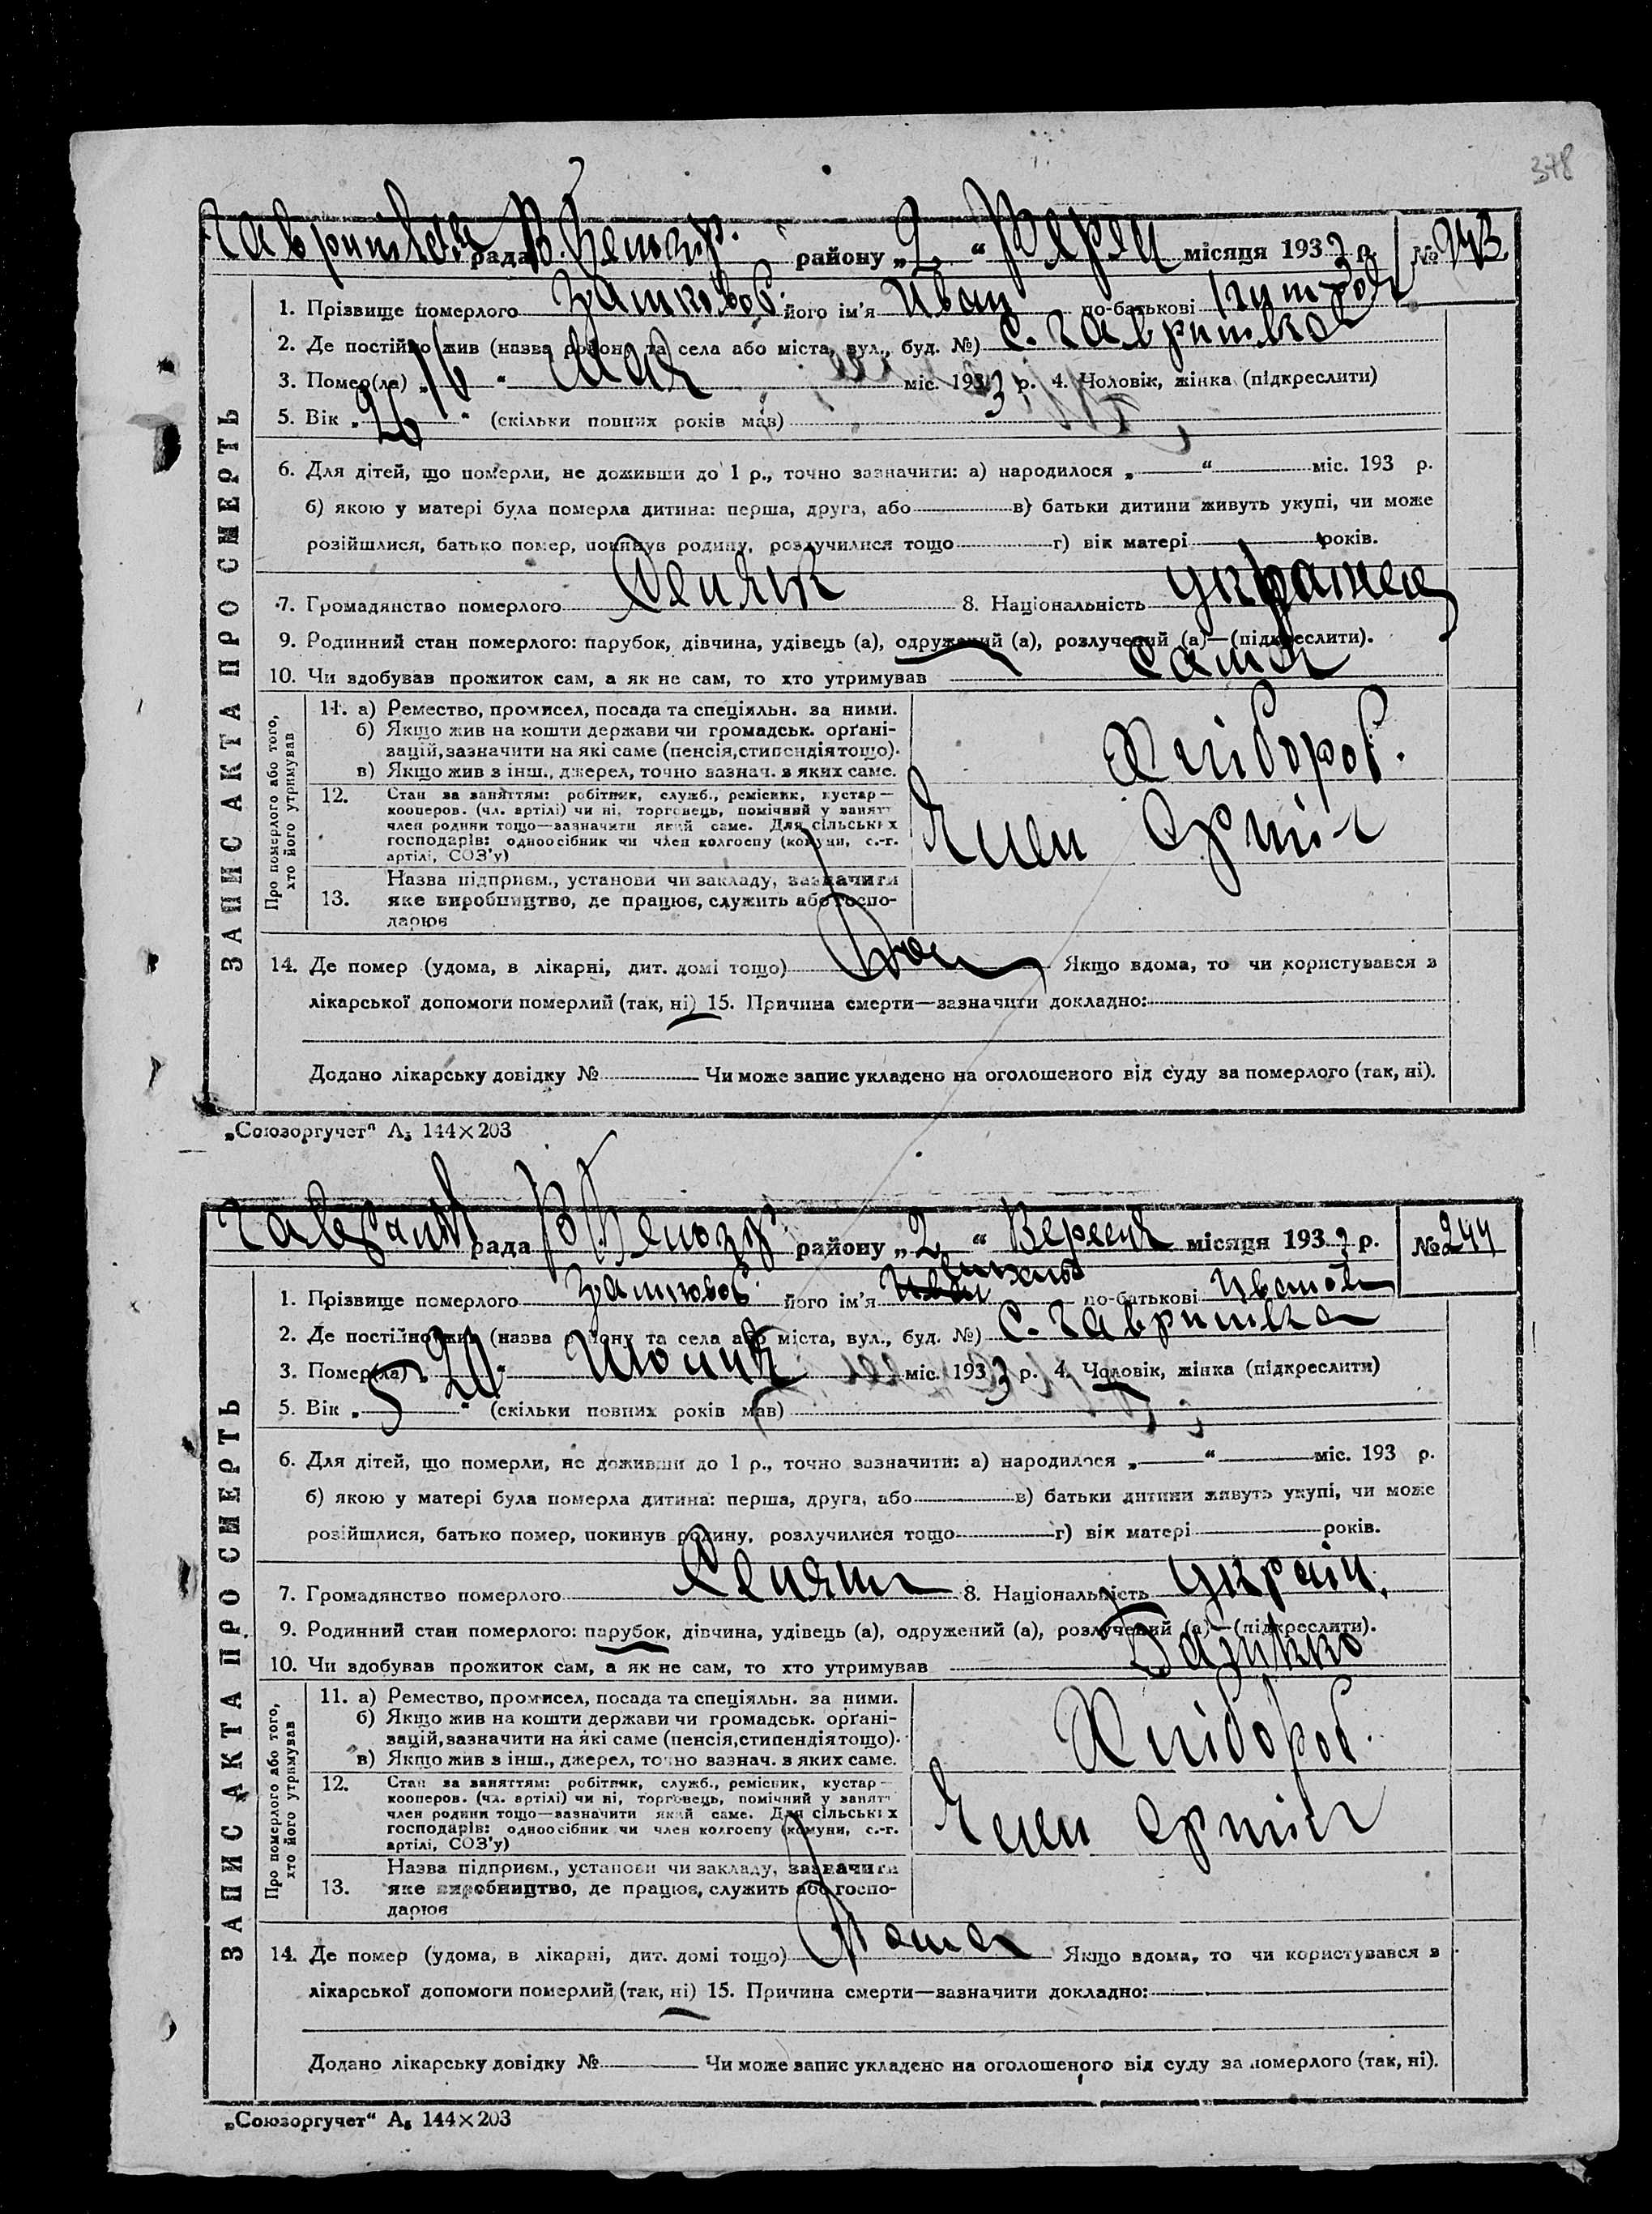 378
рада району „2“ місяця 1933 р. № 243
1. Прізвище померлого його ім'я Иван по-батькові
2. Де постійно жив (назва району та села або міста, вул., буд. №) с. Гавришовка
3. Помер(ла) „16“ Мая міс. 1933 р. 4. Чоловік, жінка (підкреслити)
5. Вік „26“ (скільки повних років мав)
6. Для дітей, що померли, не доживши до 1 р., точно зазначити: а) народилося „ “ міс. 193 р.
б) якою у матері була померла дитина: перша, друга, або в) батьки дитини живуть укупі, чи може
розійшлися, батько помер, покинув родину, розлучилися тощо г) вік матері років.
7. Громадянство померлого 8. Національність
9. Родинний стан померлого: парубок, дівчина, удівець (а), одружений (а), розлучений (а)—(підкреслити).
10. Чи здобував прожиток сам, а як не сам, то хто утримував
ЗАПИС АКТА ПРО СМЕРТЬ
Про померлого або того, хто його утримував
11. а) Ремество, промисел, посада та спеціяльн. за ними.
б) Якщо жив на кошти держави чи громадськ. орґані-
зацій, зазначити на які саме (пенсія, стипендія тощо).
в) Якщо жив з інш., джерел, точно зазнач. з яких саме.
Хлібороб.
12. Стан за заняттям: робітник, служб., ремісник, кустар—
кооперов. (чл. артілі) чи ні, торговець, помічний у занятт
член родини тощо—зазначити який саме. Для сільських
господарів: одноосібник чи член колгоспу (комуни, с.-г.
артілі, СОЗ'у)
Член Артілі
Назва підприєм., установи чи закладу, зазначити
13. яке виробництво, де працює, служить або госпо-
дарює
14. Де помер (удома, в лікарні, дит. домі тощо) Якщо вдома, то чи користувався з
лікарської допомоги померлий (так, ні) 15. Причина смерти—зазначити докладно:
Додано лікарську довідку № Чи може запис укладено на оголошеного від суду за померлого (так, ні).
„Союзоргучет“ А₅ 144×203
рада району „2“ Вересня місяця 1933 р. № 244
1. Прізвище померлого його ім'я по-батькові Иванов
2. Де постійно жив (назва району та села або міста, вул., буд. №) с. Гавришовка
3. Помер(ла) „20“ Июния міс. 1933 р. 4. Чоловік, жінка (підкреслити)
5. Вік „5“ (скільки повних років мав)
6. Для дітей, що померли, не доживши до 1 р., точно зазначити: а) народилося „ “ міс. 193 р.
б) якою у матері була померла дитина: перша, друга, або в) батьки дитини живуть укупі, чи може
розійшлися, батько помер, покинув родину, розлучилися тощо г) вік матері років.
7. Громадянство померлого 8. Національність Україн.
9. Родинний стан померлого: парубок, дівчина, удівець (а), одружений (а), розлучений (а)—(підкреслити).
10. Чи здобував прожиток сам, а як не сам, то хто утримував Батько
ЗАПИС АКТА ПРО СМЕРТЬ
Про померлого або того, хто його утримував
11. а) Ремество, промисел, посада та спеціяльн. за ними.
б) Якщо жив на кошти держави чи громадськ. орґані-
зацій, зазначити на які саме (пенсія, стипендія тощо).
в) Якщо жив з інш., джерел, точно зазнач. з яких саме.
Хлібороб.
12. Стан за заняттям: робітник, служб., ремісник, кустар—
кооперов. (чл. артілі) чи ні, торговець, помічний у занятт
член родини тощо—зазначити який саме. Для сільських
господарів: одноосібник чи член колгоспу (комуни, с.-г.
артілі, СОЗ'у)
Член Артілі
Назва підприєм., установи чи закладу, зазначити
13. яке виробництво, де працює, служить або госпо-
дарює
14. Де помер (удома, в лікарні, дит. домі тощо) Дома Якщо вдома, то чи користувався з
лікарської допомоги померлий (так, ні) 15. Причина смерти—зазначити докладно:
Додано лікарську довідку № Чи може запис укладено на оголошеного від суду за померлого (так, ні).
„Союзоргучет“ А₅ 144×203